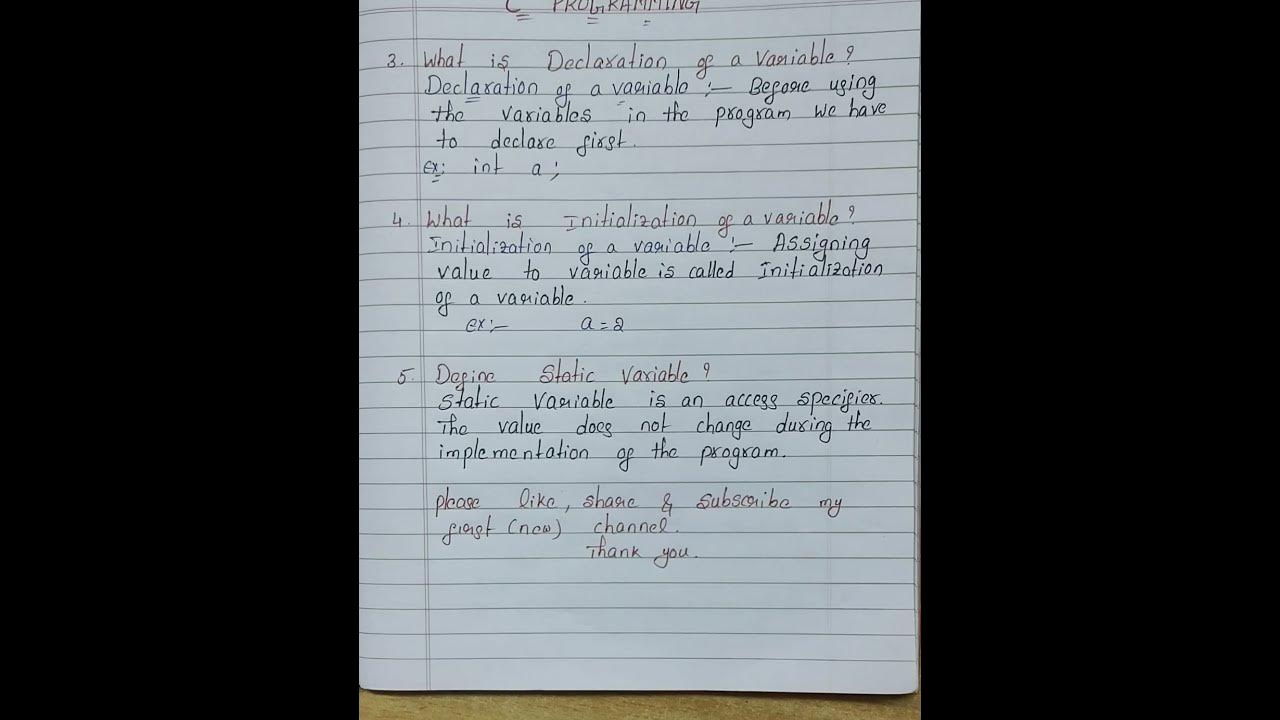 C PROGRAMMING
3. What is Declaration of a Variable?
Declaration of a variable :- Before using
the variables in the program we have
to declare first.
ex: int a;
4. What is Initialization of a variable?
Initialization of a variable :- Assigning
value to variable is called Initialization
of a variable.
ex:- a=2
5. Define Static Variable?
Static Variable is an access specifier.
The value does not change during the
implementation of the program.
please like, share & subscribe my
first (new) channel.
Thank you.